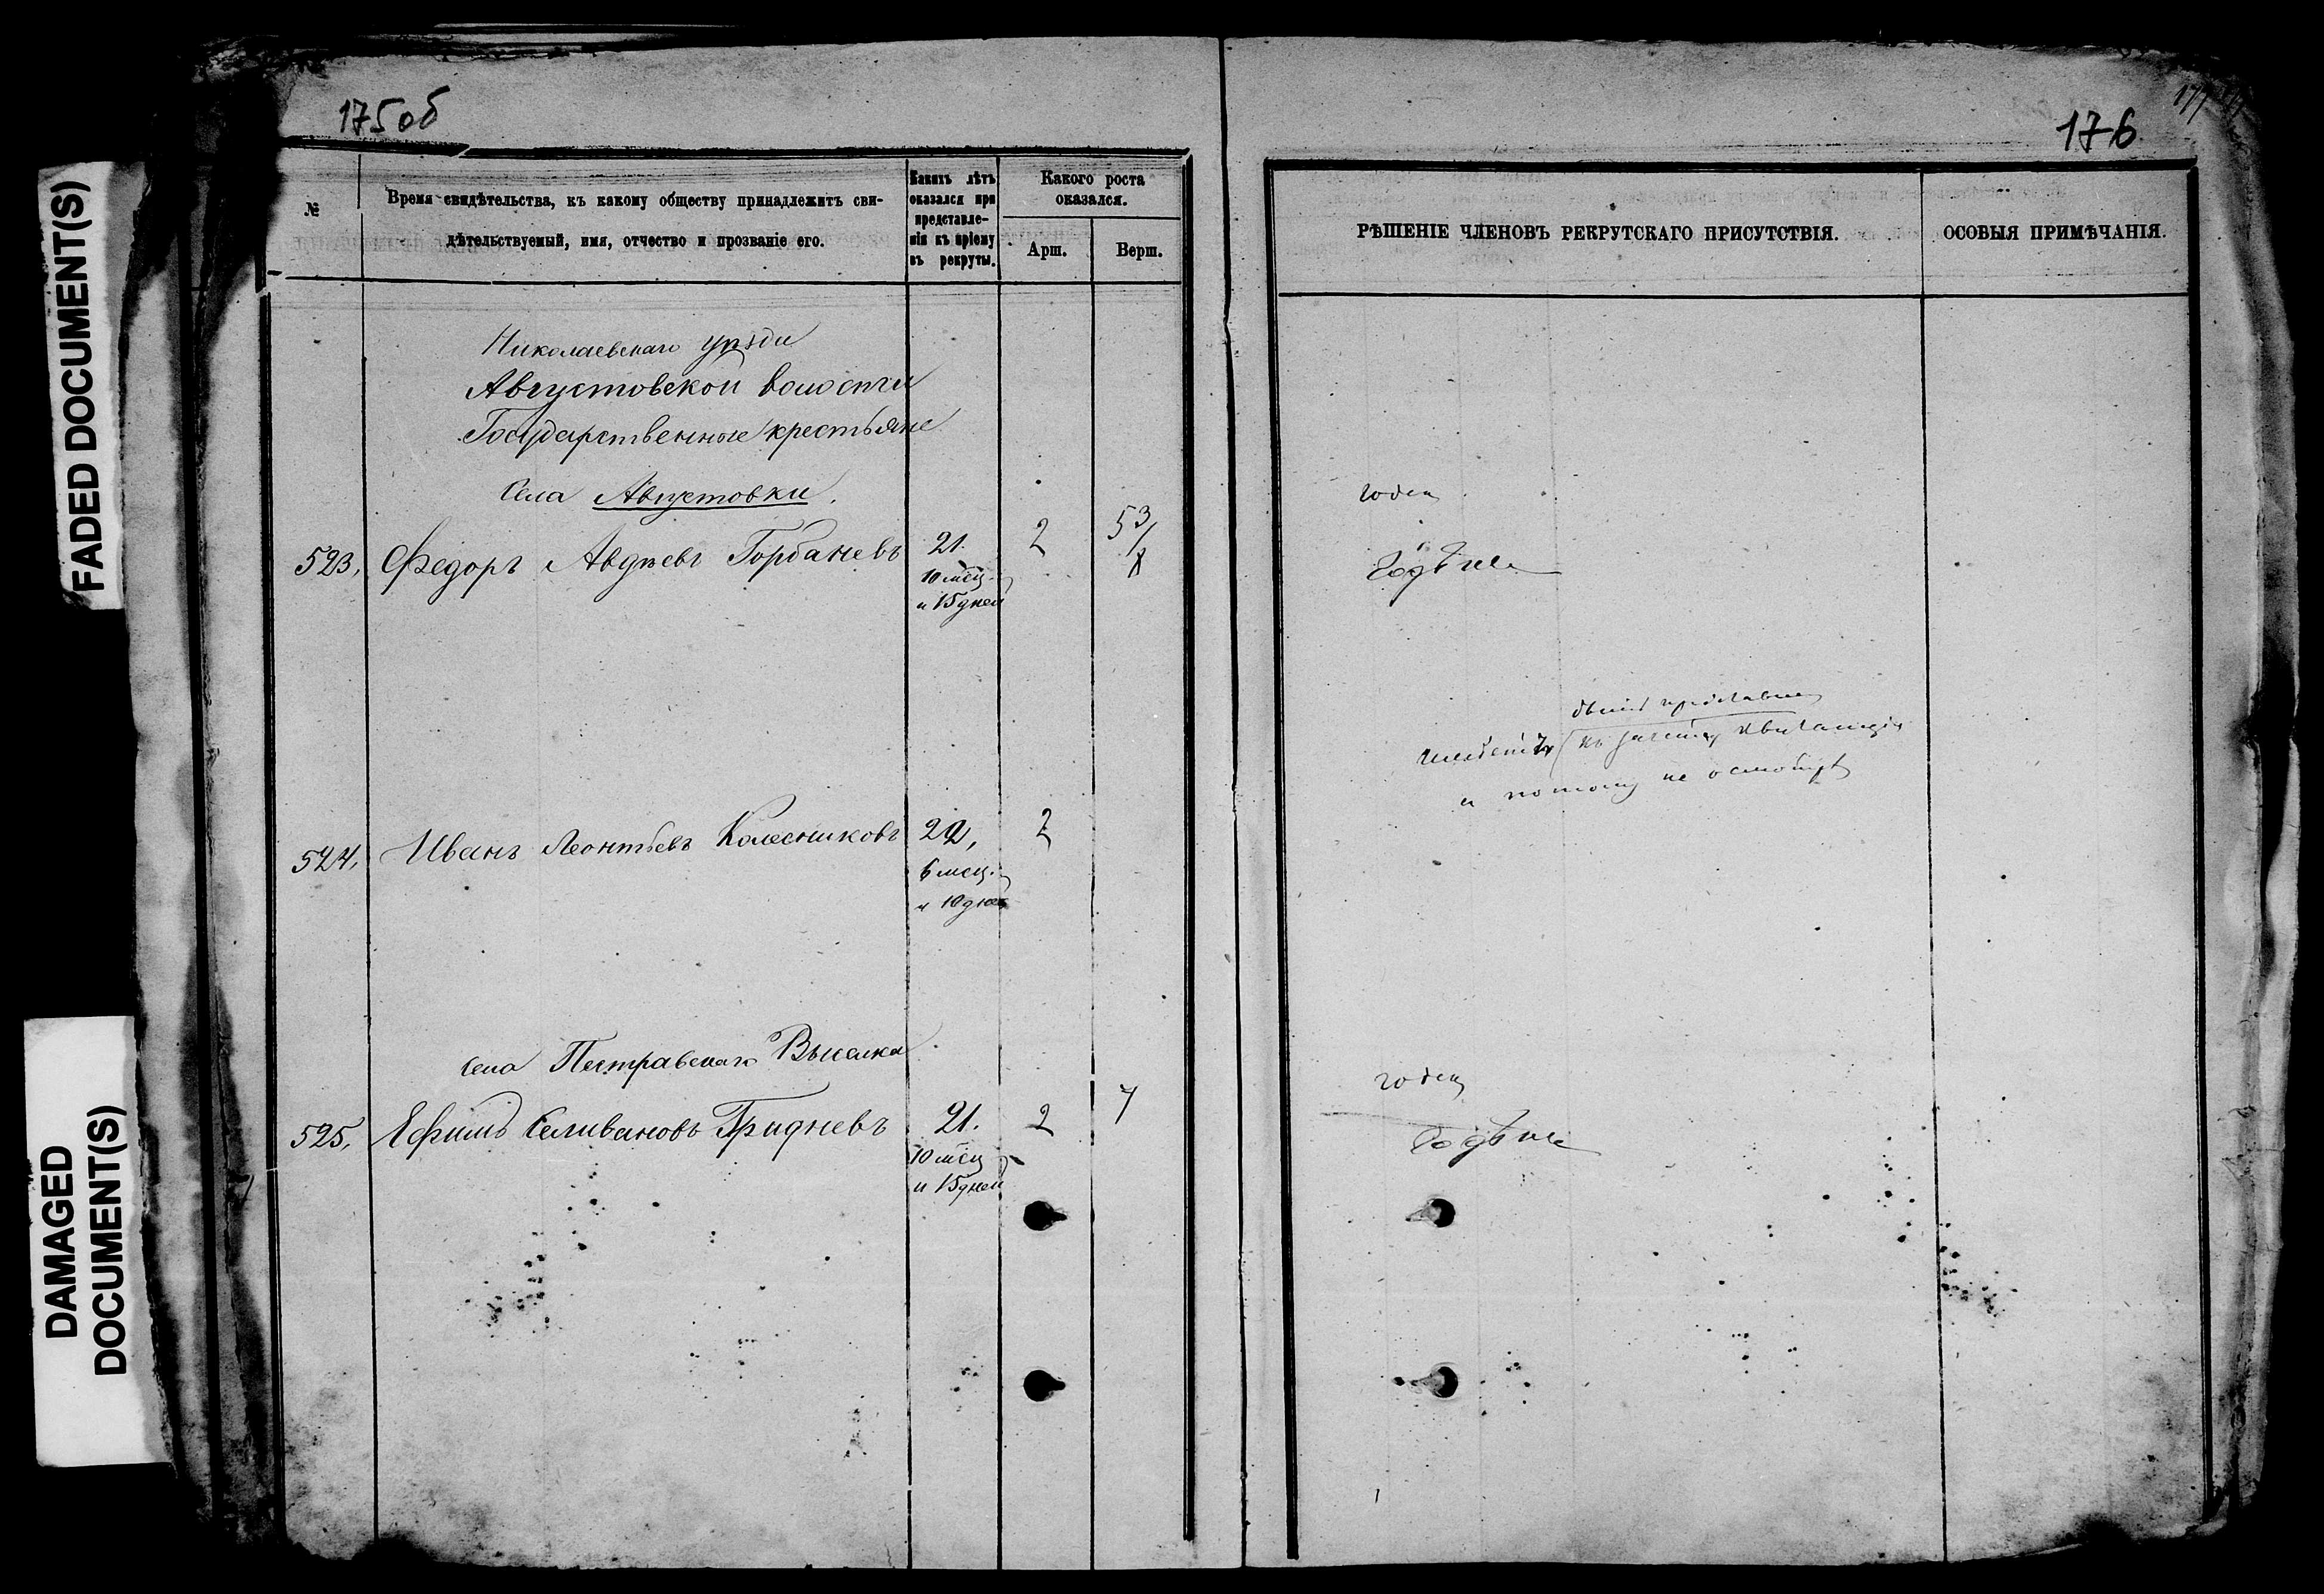 FADED DOCUMENT(S)
DAMAGED
DOCUMENT(S)
175об
№
Время свидѣтельства, къ какому обществу принадлежитъ сви-
дѣтельствуемый, имя, отчество и прозваніе его.
Какихъ лѣтъ
оказался при
представле-
ніи къ пріему
въ рекруты.
Какого роста
оказался.
Арш.
Верш.
Николаевскаго уѣзда
Августовской волости
Государственные крестьяне
Села Августовки.
523, Федоръ Авдѣевъ Горбаневъ 21. 2 53/8
10 мѣц.
и 15 дней
524, Иванъ Леонтьевъ Колесниковъ 22, 2
6 мец.
и 10 дней
Села Пестравскаго Выселка
525, Ефимъ Селивановъ Гридневъ 21. 2 7
10 мѣц
и 15 дней
176
177
РѢШЕНІЕ ЧЛЕНОВЪ РЕКРУТСКАГО ПРИСУТСТВІЯ.
ОСОБЫЯ ПРИМѢЧАНІЯ.
годен
Годѣнъ
къ зачету квитанція
и потому не осмотрѣ
годен
Годѣнъ